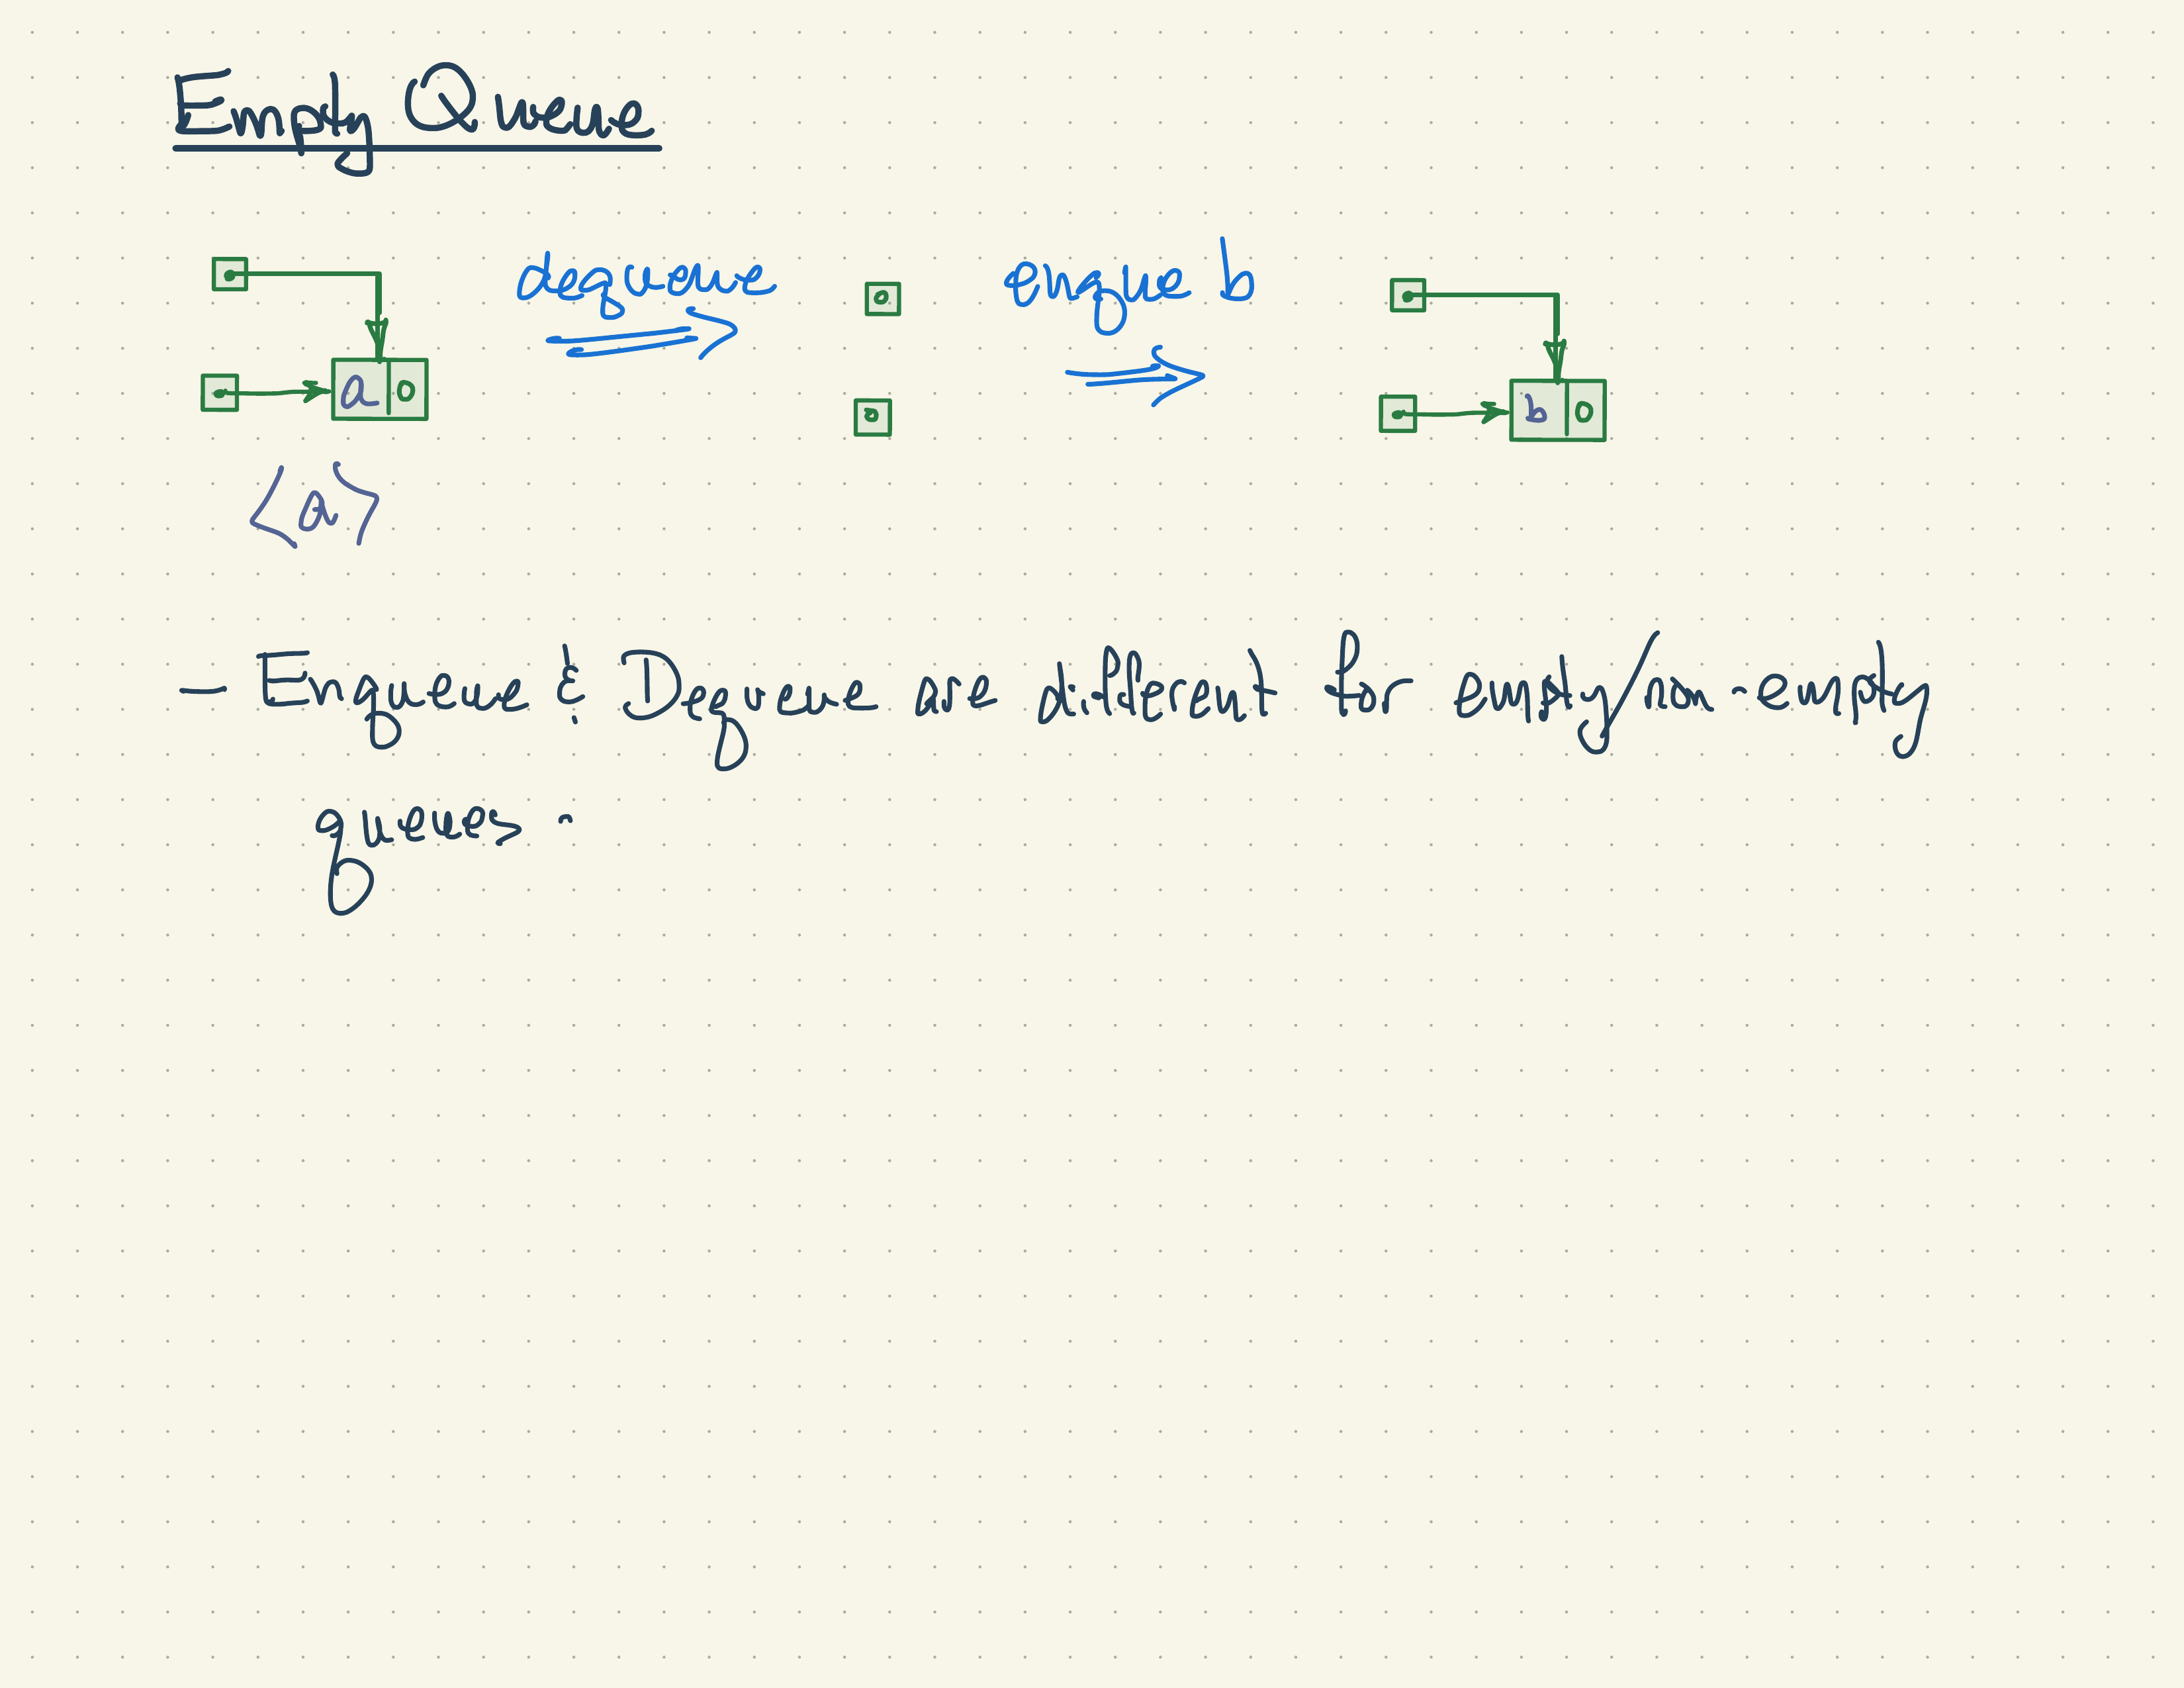 Empty Queue
dequeue enque b
0
a 0 b 0
0
<a>
- Enqueue & Dequeue are different for empty/non-empty
queues -